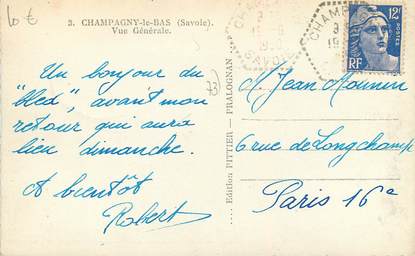 10 €
3. CHAMPAGNY-le-BAS (Savoie).
Vue Générale.
Un bonjour du
"bled", avant mon
retour qui aura
lieu dimanche.
A bientôt
Robert
73)
Edition PITTIER - PRALOGNAN
12F
POSTES
RF
CHAM
SAVOIE
M Jean Mounin
6 rue de Longchamp
Paris 16e